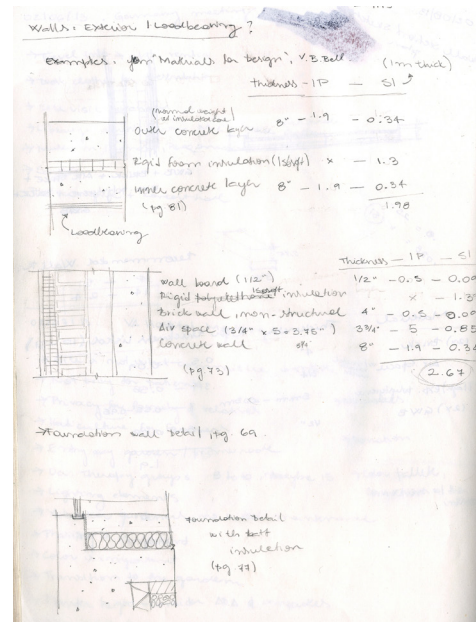 Walls: Exterior / Loadbearing?
Examples. from "Materials for Design", V.B. Bell
(1m thick)
thickness - IP - SI
(normal weight)
Outer concrete layer 8" - 1.9 - 0.34
Rigid foam insulation (Isosoft) x - 1.3
inner concrete layer 8" - 1.9 - 0.34
(pg 81) 1.98
Loadbearing
Thickness - IP - SI
wall board (1/2") 1/2" - 0.5 - 0.09
Rigid insulation x - 1.3
Brick wall, non-structural 4" - 0.5 - 0.09
Air space (3/4" x 5 = 3.75") 3 3/4" - 5 - 0.85
Concrete wall 8" - 1.9 - 0.34
(pg 73) 2.67
→Foundation wall detail, pg. 69.
Foundation detail
with batt
insulation
(pg 77)